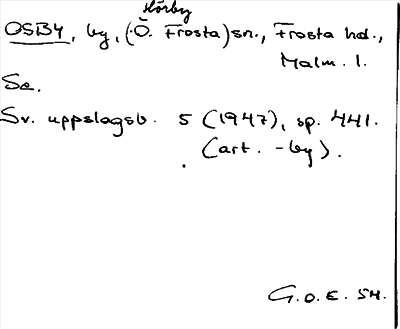 Hörby
OSBY, by, (Ö. Frosta) sn., Frosta hd.,
Malm. l.
Se.
Sv. uppslagsb. 5 (1947), sp. 441.
(art. -by).
G.O.E. SH.